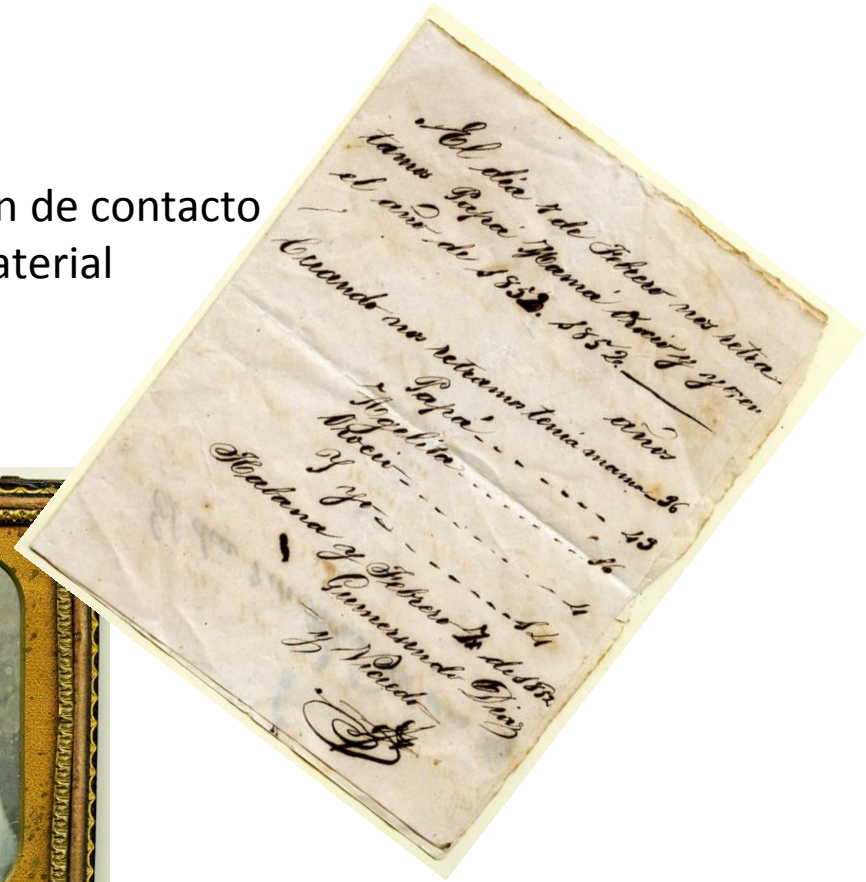 n de contacto
aterial
El dia 7 de Febrero nos retra-
tamos Papá Mamá y yo en
el año de 1852. 1852.
años
Cuando nos retramo tenia mama 36
Papá 43
Angelita 16
Y yo
Habana y Febrero 7 de 1852
Gumersindo Diaz
y Vicedo